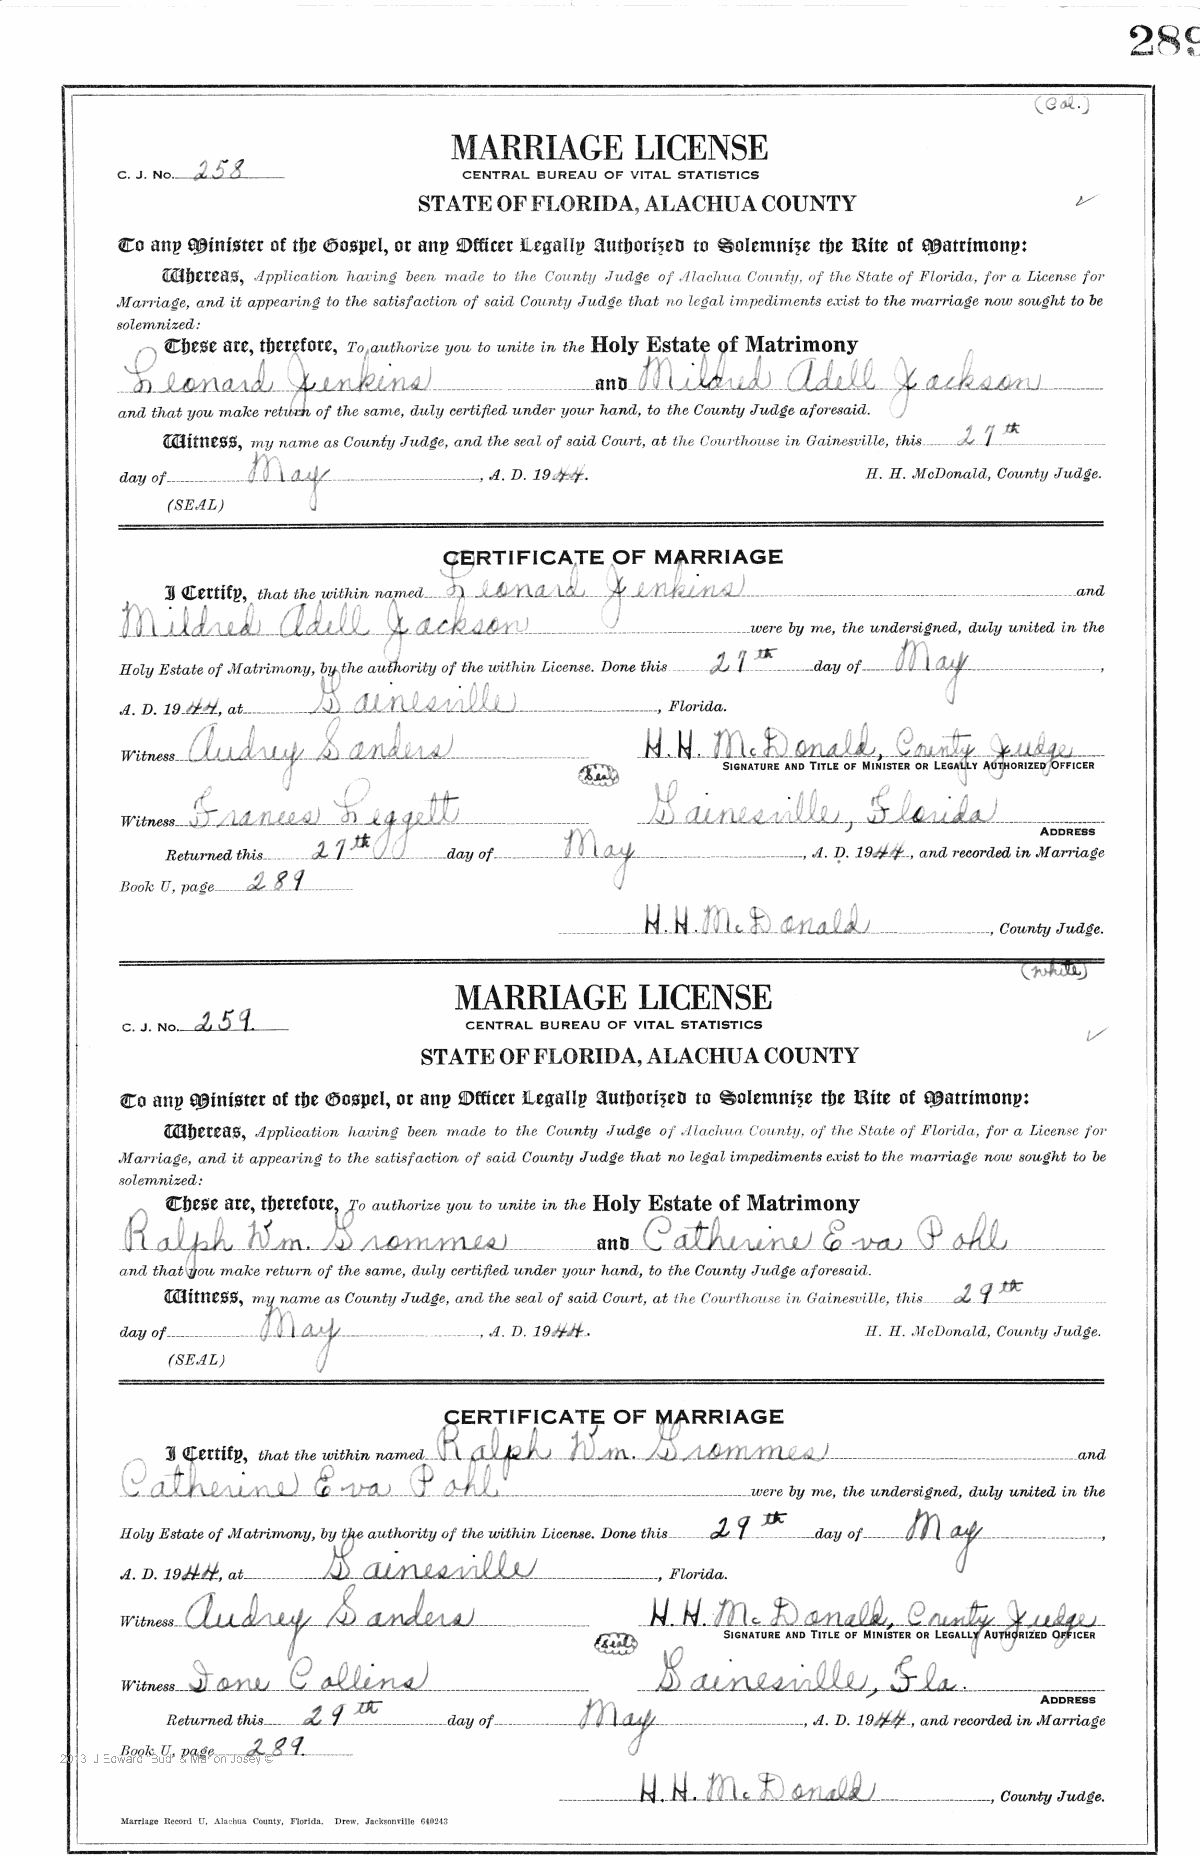 289
(Col.)
MARRIAGE LICENSE
C. J. No. 258
CENTRAL BUREAU OF VITAL STATISTICS
STATE OF FLORIDA, ALACHUA COUNTY
To any Minister of the Gospel, or any Officer Legally Authorized to Solemnize the Rite of Matrimony:
Whereas, Application having been made to the County Judge of Alachua County, of the State of Florida, for a License for
Marriage, and it appearing to the satisfaction of said County Judge that no legal impediments exist to the marriage now sought to be
solemnized:
These are, therefore, To authorize you to unite in the Holy Estate of Matrimony
Leonard Jenkins and Mildred Adell Jackson
and that you make return of the same, duly certified under your hand, to the County Judge aforesaid.
Witness, my name as County Judge, and the seal of said Court, at the Courthouse in Gainesville, this 27th
day of May, A. D. 1944. H. H. McDonald, County Judge.
(SEAL)
CERTIFICATE OF MARRIAGE
I Certify, that the within named Leonard Jenkins and
Mildred Adell Jackson were by me, the undersigned, duly united in the
Holy Estate of Matrimony, by the authority of the within License. Done this 27th day of May,
A. D. 1944, at Gainesville, Florida.
Witness Audrey Sanders H. H. McDonald, County Judge
SIGNATURE AND TITLE OF MINISTER OR LEGALLY AUTHORIZED OFFICER
Seal
Witness Frances Leggett Gainesville, Florida
ADDRESS
Returned this 27th day of May, A. D. 1944, and recorded in Marriage
Book U, page 289
H. H. McDonald, County Judge.
(White)
MARRIAGE LICENSE
C. J. No. 259.
CENTRAL BUREAU OF VITAL STATISTICS
STATE OF FLORIDA, ALACHUA COUNTY
To any Minister of the Gospel, or any Officer Legally Authorized to Solemnize the Rite of Matrimony:
Whereas, Application having been made to the County Judge of Alachua County, of the State of Florida, for a License for
Marriage, and it appearing to the satisfaction of said County Judge that no legal impediments exist to the marriage now sought to be
solemnized:
These are, therefore, To authorize you to unite in the Holy Estate of Matrimony
Ralph Wm. Grommes and Catherine Eva Pohl
and that you make return of the same, duly certified under your hand, to the County Judge aforesaid.
Witness, my name as County Judge, and the seal of said Court, at the Courthouse in Gainesville, this 29th
day of May, A. D. 1944. H. H. McDonald, County Judge.
(SEAL)
CERTIFICATE OF MARRIAGE
I Certify, that the within named Ralph Wm. Grommes and
Catherine Eva Pohl were by me, the undersigned, duly united in the
Holy Estate of Matrimony, by the authority of the within License. Done this 29th day of May,
A. D. 1944, at Gainesville, Florida.
Witness Audrey Sanders H. H. McDonald, County Judge
SIGNATURE AND TITLE OF MINISTER OR LEGALLY AUTHORIZED OFFICER
Seal
Witness Ione Collins Gainesville, Fla.
ADDRESS
Returned this 29th day of May, A. D. 1944, and recorded in Marriage
Book U, page 289.
2013 J Edward "Bud" & Marion Josey ©
H. H. McDonald, County Judge.
Marriage Record U, Alachua County, Florida. Drew, Jacksonville 640243